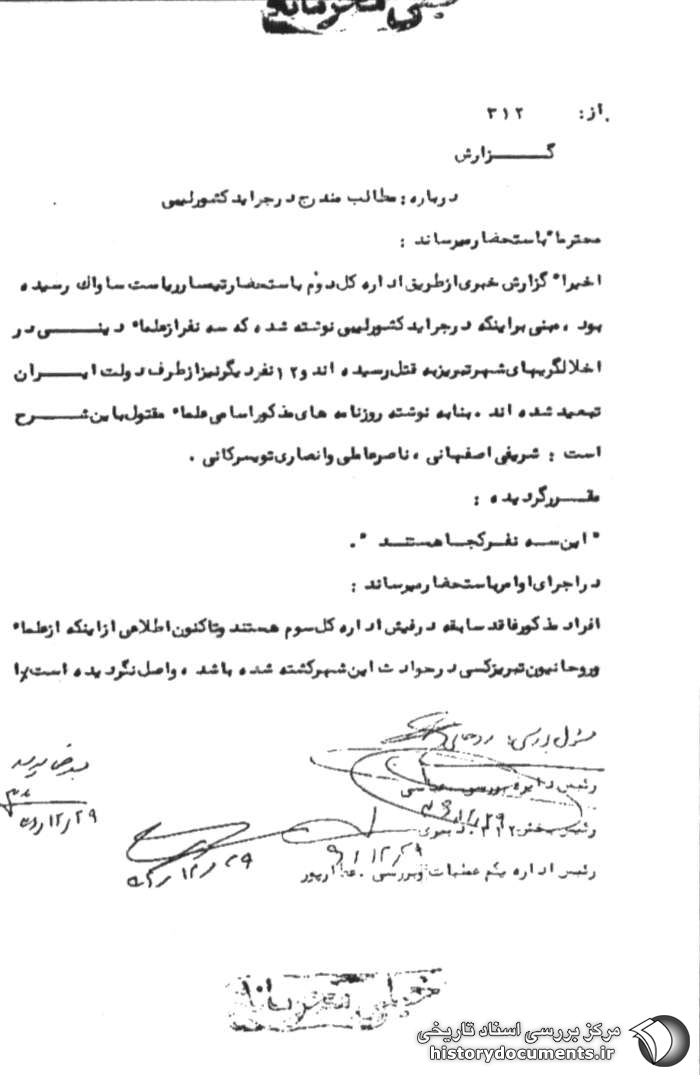 خیلی محرمانه
از: ۳۱۲
گزارش
درباره: مطالب مندرج در جراید کشور لیبی
محترماً باستحضار میرساند:
اخیراً گزارش خبری از طریق اداره کل دوم باستحضار تیمسار ریاست ساواک رسیده
بود، مبنی بر اینکه در جراید کشور لیبی نوشته شده که سه نفر از علماء دینی در
اخلالگریهای شهر تبریز به قتل رسیده اند و ۱۲ نفر دیگر نیز از طرف دولت ایران
تبعید شده اند. بنا به نوشته روزنامه های مذکور اسامی علماء مقتول باین شرح
است: شریفی اصفهانی، ناصر عاملی و انصاری تویسرکانی.
مقرر گردیده:
"این سه نفر کجا هستند".
در اجرای اوامر باستحضار میرساند:
افراد مذکور فاقد سابقه در فیش اداره کل سوم هستند و تاکنون اطلاعی از اینکه از علماء
و روحانیون تبریز کسی در حوادث این شهر کشته شده باشد، واصل نگردیده است
مسئول بررسی:
رئیس دایره بررسی
رئیس بخش ۳۱۲
رئیس اداره یکم عملیات و بررسی.
۱۲/۲۹
خیلی محرمانه
مرکز بررسی اسناد تاریخی
historydocuments.ir